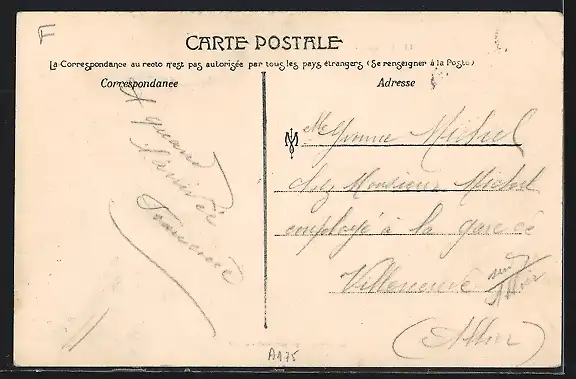 F
CARTE POSTALE
La Correspondance au recto n'est pas autorisée par tous les pays étrangers (Se renseigner à la Poste)
Correspondance
Adresse
A quand
l'arrivée
Mlle Yvonne Michel
chez Monsieur Michel
employé à la gare de
Villeneuve sur
Allier
(Allier)
A175